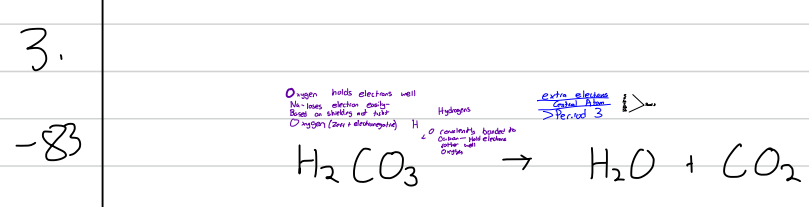 3.
-83
Oxygen holds electrons well
Na-loses electron easily-
Based on shielding not tight
Oxygen (2nd + electronegative) H
Hydrogens
O covalently bonded to
Carbon - Hold electrons
rather well
Oxygen
extra electrons
Central Atom
>Period 3
H₂CO₃ → H₂O + CO₂